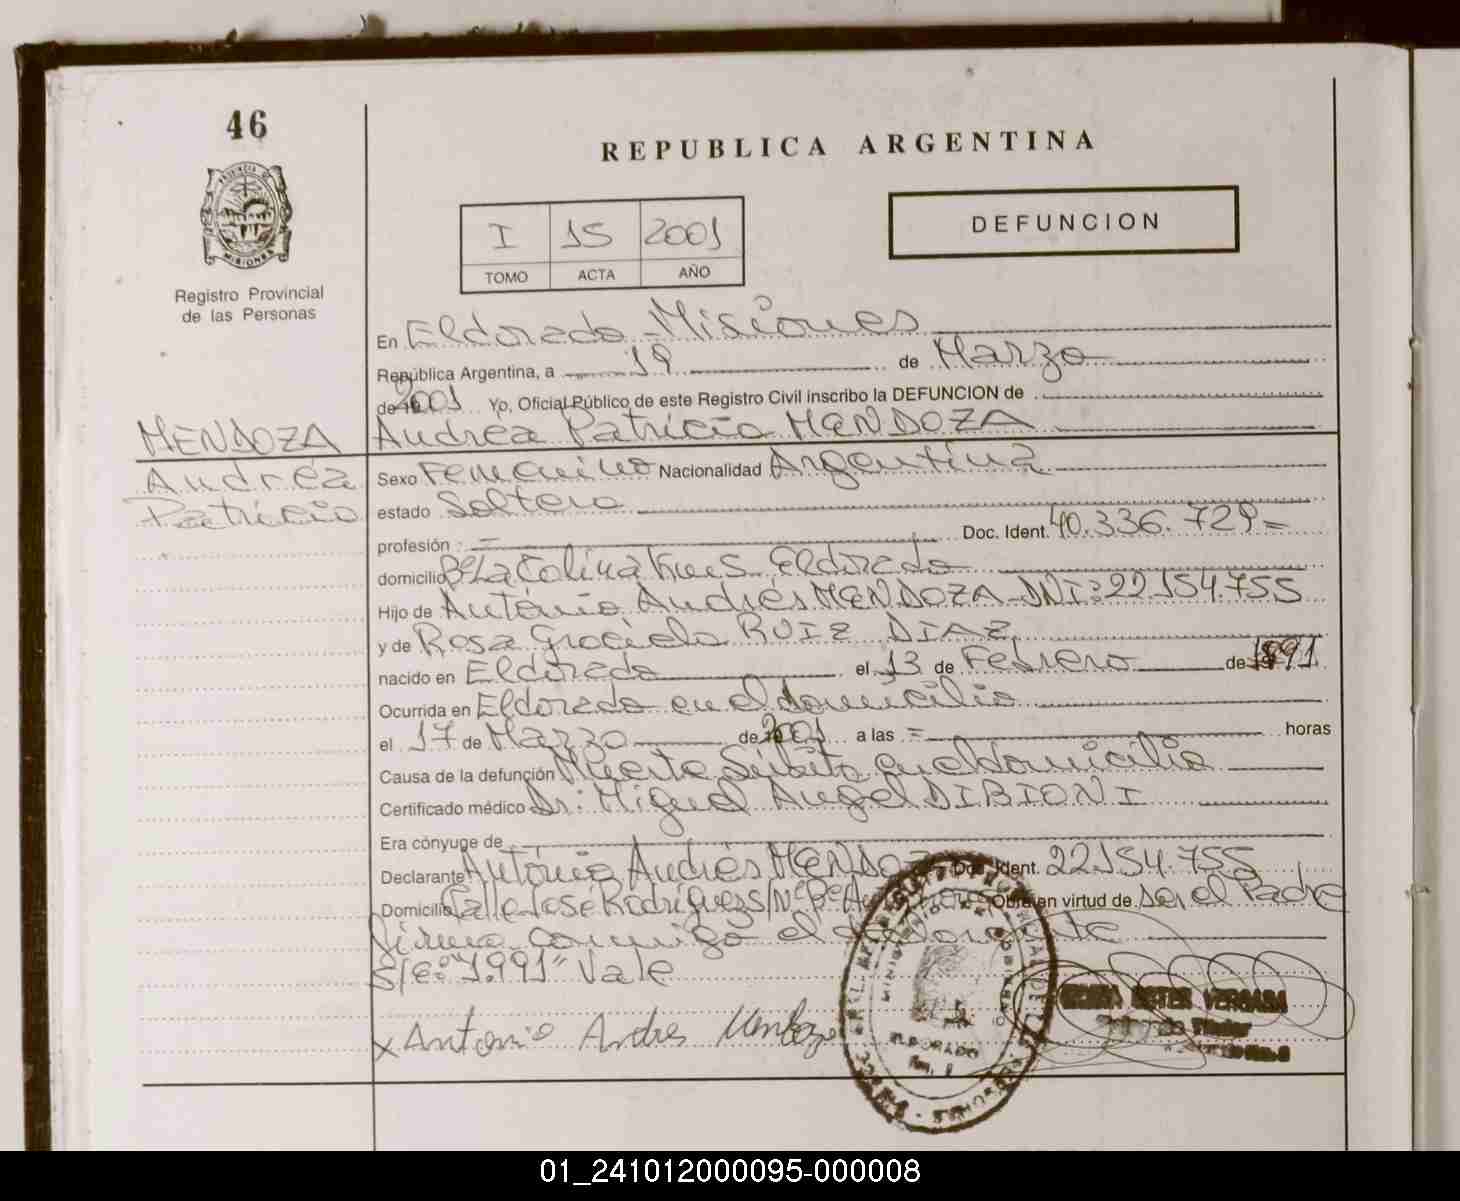 46
REPUBLICA ARGENTINA
I 15 2001
TOMO ACTA AÑO
DEFUNCION
PROVINCIA DE
MISIONES
Registro Provincial
de las Personas
En Eldorado - Misiones
República Argentina, a 19 de Marzo
de 2001 Yo, Oficial Público de este Registro Civil inscribo la DEFUNCION de
MENDOZA Andrea Patricia MENDOZA
Andrea
Patricia
Sexo Femenino Nacionalidad Argentina
estado Soltera
profesión = Doc. Ident. 40.336.729=
domicilio Bº La Colina Kms. Eldorado
Hijo de Antonio Andrés MENDOZA - DNI: 22.154.755
y de Rosa Graciela RUIZ DIAZ
nacido en Eldorado el 13 de Febrero de 1991
Ocurrida en Eldorado en el domicilio
el 17 de Marzo de 2001 a las = horas
Causa de la defunción Muerte Súbita en el domicilio
Certificado médico Dr. Miguel Angel DIBIONI
Era cónyuge de
Declarante Antonio Andrés MENDOZA Doc. Ident. 22154.755
Domicilio Calle José Rodríguez S/Nº Bº Obra en virtud de ser el Padre
firma conmigo el declarante
S/E: "1.991" Vale
x Antonio Andres Mendoza
MINISTERIO DE GOBIERNO
ELDORADO
VERGARA
Titular
01_241012000095-000008